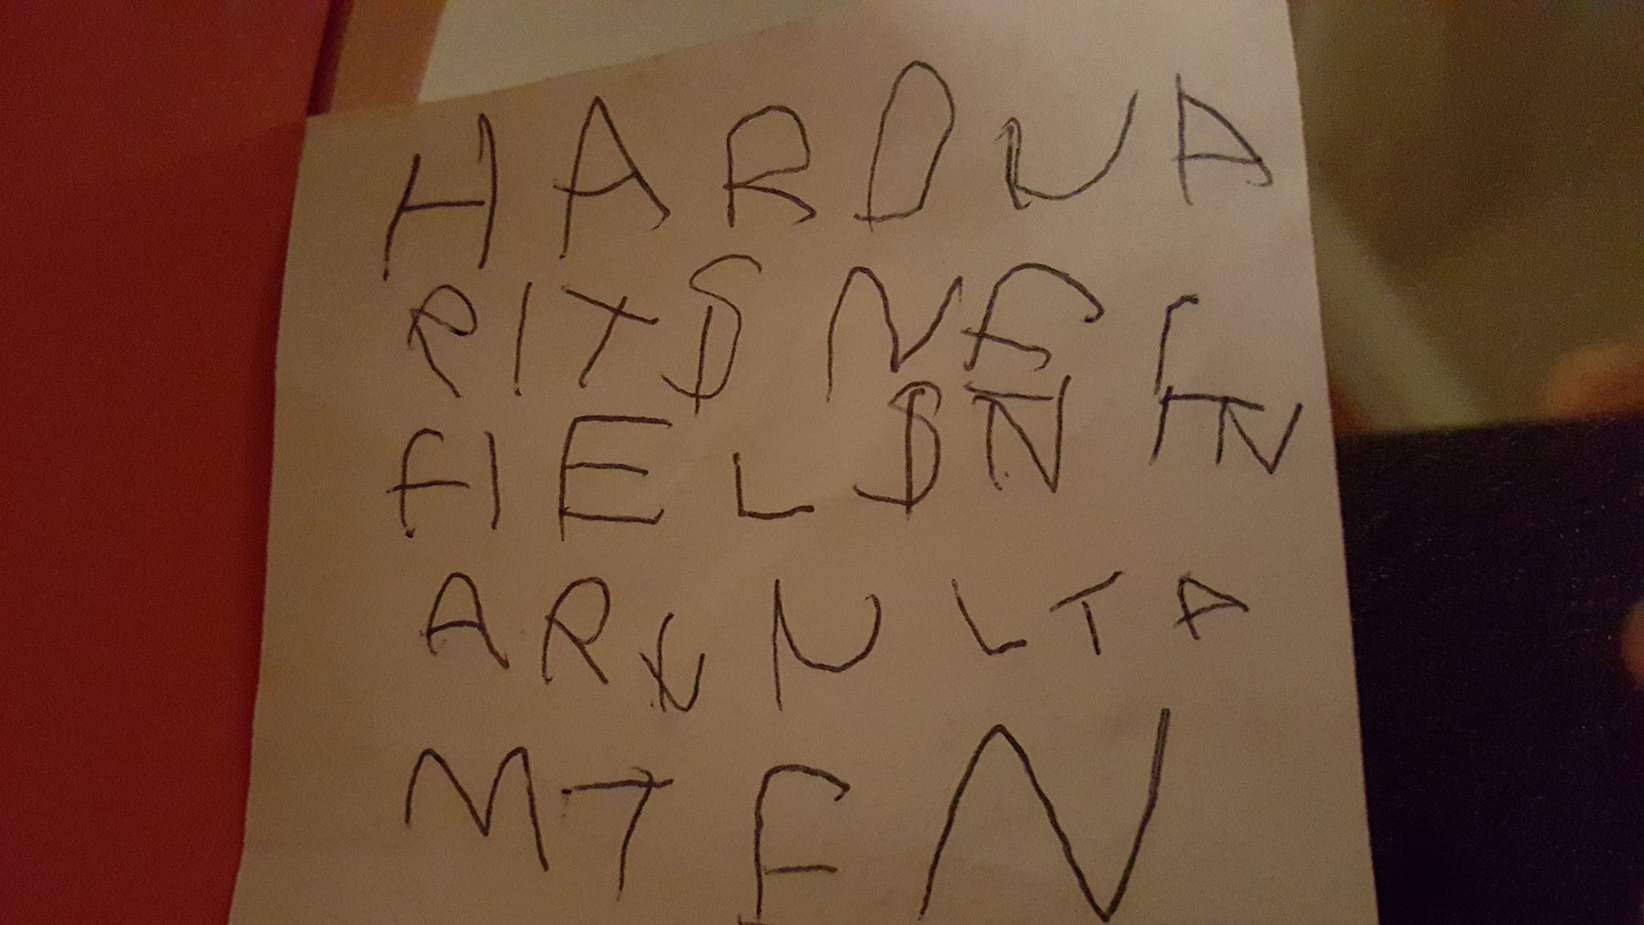 HARDUA
RITSNEF
FIELSN FN
ARKNLTA
MTEN